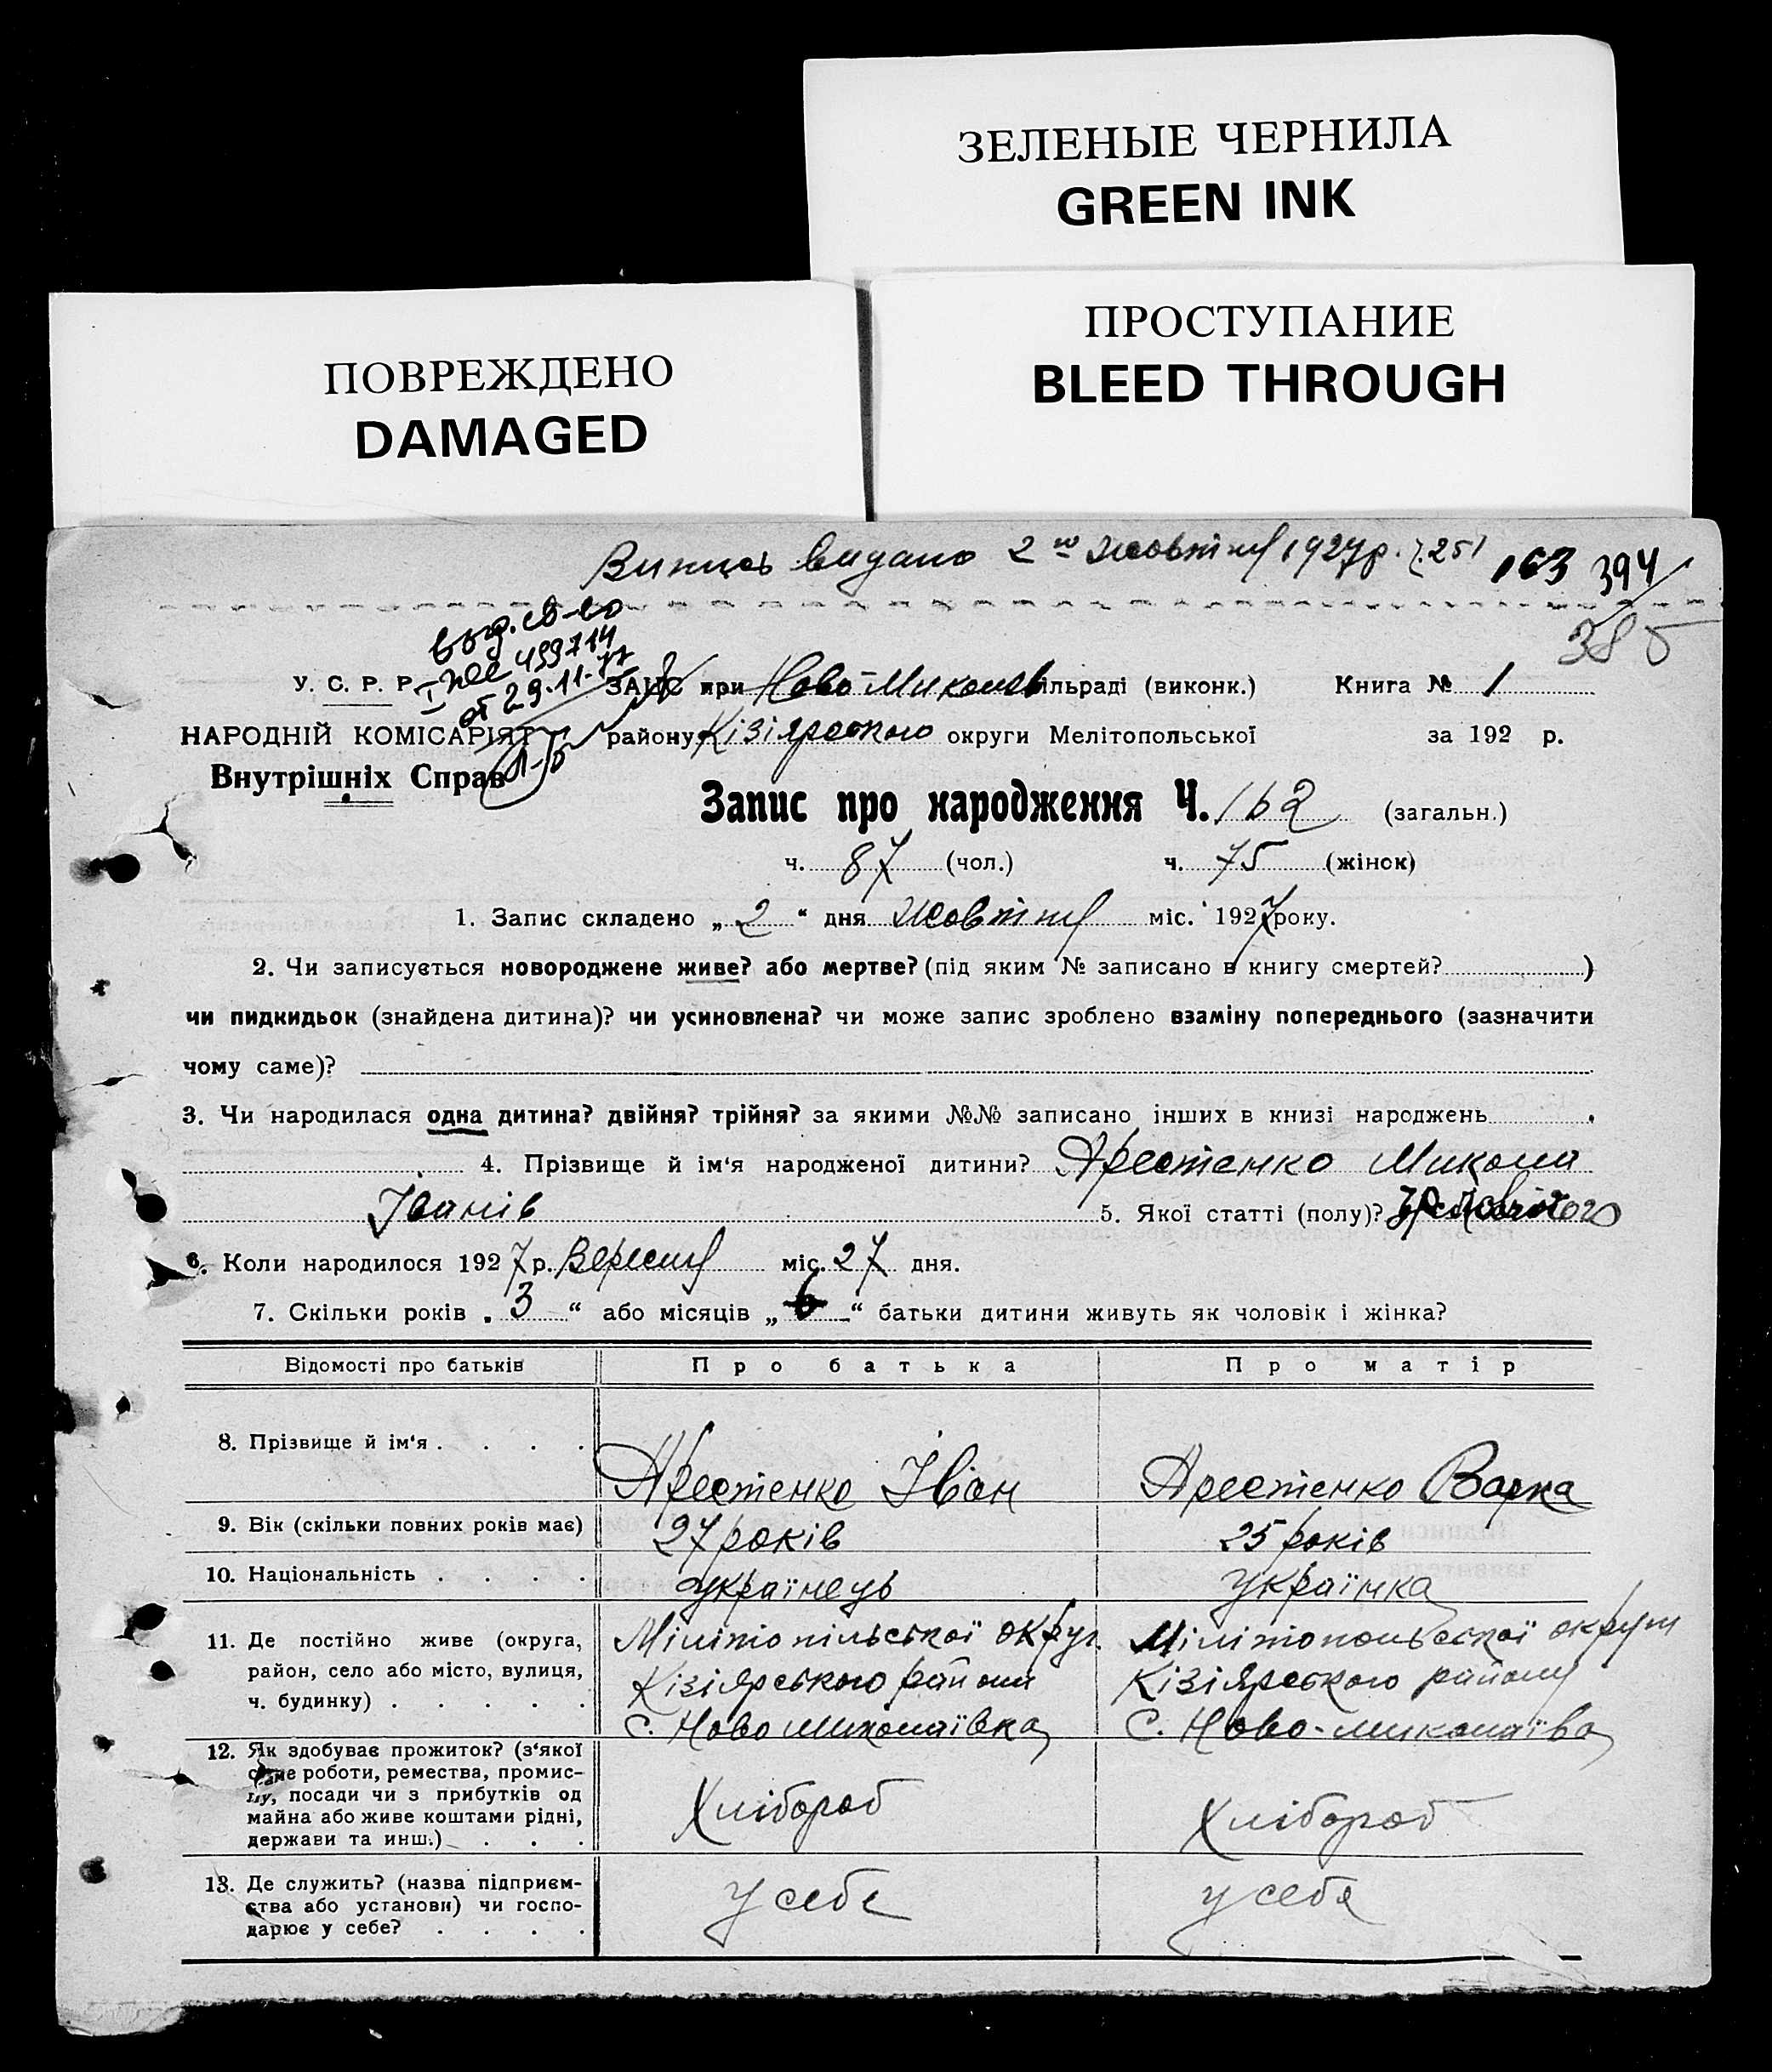 ЗЕЛЕНЫЕ ЧЕРНИЛА
GREEN INK
ПРОСТУПАНИЕ
BLEED THROUGH
ПОВРЕЖДЕНО
DAMAGED
Випись видано 2го жовтня 1927р. 163 394
385
выд. св-во
499714
от 29.11.77
У. С. Р. Р. ЗАГС при Ново-Миколаїв сільраді (виконк.) Книга № 1
НАРОДНІЙ КОМІСАРІЯТ району Кізіярського округи Мелітопольської за 192 р.
Внутрішніх Справ
Запис про народження Ч. 162 (загальн.)
ч. 87 (чол.) ч. 75 (жінок)
1. Запис складено „ 2 “ дня жовтня міс. 1927 року.
2. Чи записується новороджене живе? або мертве? (під яким № записано в книгу смертей? )
чи пидкидьок (знайдена дитина)? чи усиновлена? чи може запис зроблено взаміну попереднього (зазначити
чому саме)?
3. Чи народилася одна дитина? двійня? трійня? за якими №№ записано інших в книзі народжень
4. Прізвище й ім‘я народженої дитини? Арестенко Микола
Іванів 5. Якої статті (полу)? Чоловічого
6. Коли народилося 1927 р. Вересня міс. 27 дня.
7. Скільки років „ 3 “ або місяців „ 6 “ батьки дитини живуть як чоловік і жінка?
Відомості про батьків Про батька Про матір
8. Прізвище й ім‘я . . . . Арестенко Іван Арестенко Варка
9. Вік (скільки повних років має) 27 років 25 років
10. Національність . . . . українець українка
11. Де постійно живе (округа, Мілітопільської округ. Мілітопольської округи
район, село або місто, вулиця, Кізіярського района Кізіярського району
ч. будинку) . . . . . С. Ново Миколаївка С. Ново-миколаїва
12. Як здобуває прожиток? (з‘якої
саме роботи, ремества, промис-
лу, посади чи з прибутків од Хлібороб Хлібороб
майна або живе коштами рідні,
держави та инш.) . . .
13. Де служить? (назва підприєм-
ства або установи) чи госпо- у себе у себя
дарює у себе? . . . .